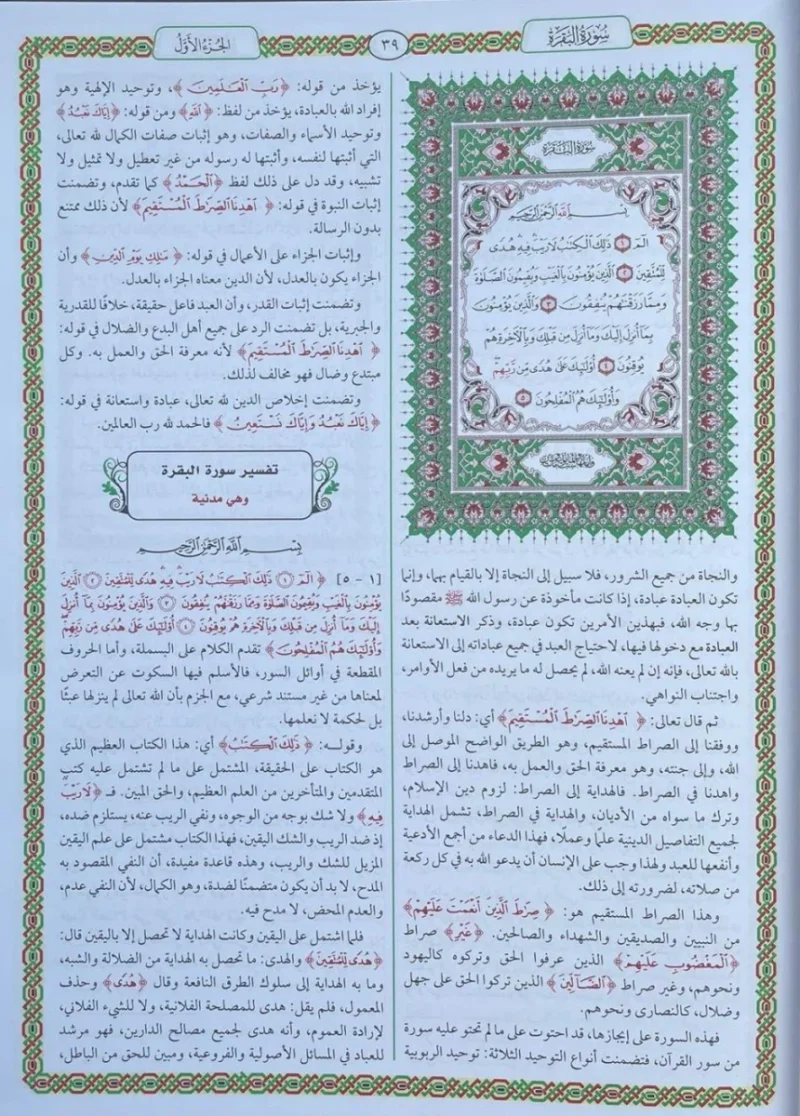 سُورَةُ البَقَرَة
٣٩
الجُزْءُ الأَوَّلُ
سُورَةُ البَقَرَة
بِسْمِ اللَّهِ الرَّحْمَٰنِ الرَّحِيمِ
الٓمٓ ۝١ ذَٰلِكَ الْكِتَٰبُ لَا رَيْبَ فِيهِ هُدًى
لِّلْمُتَّقِينَ ۝٢ الَّذِينَ يُؤْمِنُونَ بِالْغَيْبِ وَيُقِيمُونَ الصَّلَوٰةَ
وَمِمَّا رَزَقْنَٰهُمْ يُنفِقُونَ ۝٣ وَالَّذِينَ يُؤْمِنُونَ
بِمَا أُنزِلَ إِلَيْكَ وَمَا أُنزِلَ مِن قَبْلِكَ وَبِالْآخِرَةِ هُمْ
يُوقِنُونَ ۝٤ أُولَٰئِكَ عَلَىٰ هُدًى مِّن رَّبِّهِمْ
وَأُولَٰئِكَ هُمُ الْمُفْلِحُونَ ۝٥
والنجاة من جميع الشرور، فلا سبيل إلى النجاة إلا بالقيام بهما، وإنما
تكون العبادة عبادة، إذا كانت مأخوذة عن رسول الله ﷺ مقصودًا
بها وجه الله، فبهذين الأمرين تكون عبادة، وذكر الاستعانة بعد
العبادة مع دخولها فيها، لاحتياج العبد في جميع عباداته إلى الاستعانة
بالله تعالى، فإنه إن لم يعنه الله، لم يحصل له ما يريده من فعل الأوامر،
واجتناب النواهي.
ثم قال تعالى: ﴿ اهْدِنَا الصِّرَٰطَ الْمُسْتَقِيمَ ﴾ أي: دلنا وأرشدنا،
ووفقنا إلى الصراط المستقيم، وهو الطريق الواضح الموصل إلى
الله، وإلى جنته، وهو معرفة الحق والعمل به، فاهدنا إلى الصراط
واهدنا في الصراط. فالهداية إلى الصراط: لزوم دين الإسلام،
وترك ما سواه من الأديان، والهداية في الصراط، تشمل الهداية
لجميع التفاصيل الدينية علمًا وعملًا، فهذا الدعاء من أجمع الأدعية
وأنفعها للعبد ولهذا وجب على الإنسان أن يدعو الله به في كل ركعة
من صلاته، لضرورته إلى ذلك.
وهذا الصراط المستقيم هو: ﴿ صِرَٰطَ الَّذِينَ أَنْعَمْتَ عَلَيْهِمْ ﴾
من النبيين والصديقين والشهداء والصالحين. ﴿ غَيْرِ ﴾ صراط
﴿ الْمَغْضُوبِ عَلَيْهِمْ ﴾ الذين عرفوا الحق وتركوه كاليهود
ونحوهم، وغير صراط ﴿ الضَّالِّينَ ﴾ الذين تركوا الحق على جهل
وضلال، كالنصارى ونحوهم.
فهذه السورة على إيجازها، قد احتوت على ما لم تحتو عليه سورة
من سور القرآن، فتضمنت أنواع التوحيد الثلاثة: توحيد الربوبية
يؤخذ من قوله: ﴿ رَبِّ الْعَٰلَمِينَ ﴾، وتوحيد الإلهية وهو
إفراد الله بالعبادة، يؤخذ من لفظ: ﴿ اللَّهِ ﴾ ومن قوله: ﴿ إِيَّاكَ نَعْبُدُ ﴾
وتوحيد الأسماء والصفات، وهو إثبات صفات الكمال لله تعالى،
التي أثبتها لنفسه، وأثبتها له رسوله من غير تعطيل ولا تمثيل ولا
تشبيه، وقد دل على ذلك لفظ ﴿ الْحَمْدُ ﴾ كما تقدم، وتضمنت
إثبات النبوة في قوله: ﴿ اهْدِنَا الصِّرَٰطَ الْمُسْتَقِيمَ ﴾ لأن ذلك ممتنع
بدون الرسالة.
وإثبات الجزاء على الأعمال في قوله: ﴿ مَٰلِكِ يَوْمِ الدِّينِ ﴾ وأن
الجزاء يكون بالعدل، لأن الدين معناه الجزاء بالعدل.
وتضمنت إثبات القدر، وأن العبد فاعل حقيقة، خلافًا للقدرية
والجبرية، بل تضمنت الرد على جميع أهل البدع والضلال في قوله:
﴿ اهْدِنَا الصِّرَٰطَ الْمُسْتَقِيمَ ﴾ لأنه معرفة الحق والعمل به. وكل
مبتدع وضال فهو مخالف لذلك.
وتضمنت إخلاص الدين لله تعالى، عبادة واستعانة في قوله:
﴿ إِيَّاكَ نَعْبُدُ وَإِيَّاكَ نَسْتَعِينُ ﴾ فالحمد لله رب العالمين.
تفسير سورة البقرة
وهي مدنية
بِسْمِ اللَّهِ الرَّحْمَٰنِ الرَّحِيمِ
[١ - ٥] ﴿ الٓمٓ ۝١ ذَٰلِكَ الْكِتَٰبُ لَا رَيْبَ فِيهِ هُدًى لِّلْمُتَّقِينَ ۝٢ الَّذِينَ
يُؤْمِنُونَ بِالْغَيْبِ وَيُقِيمُونَ الصَّلَوٰةَ وَمِمَّا رَزَقْنَٰهُمْ يُنفِقُونَ ۝٣ وَالَّذِينَ يُؤْمِنُونَ بِمَا أُنزِلَ
إِلَيْكَ وَمَا أُنزِلَ مِن قَبْلِكَ وَبِالْآخِرَةِ هُمْ يُوقِنُونَ ۝٤ أُولَٰئِكَ عَلَىٰ هُدًى مِّن رَّبِّهِمْ
وَأُولَٰئِكَ هُمُ الْمُفْلِحُونَ ﴾ تقدم الكلام على البسملة، وأما الحروف
المقطعة في أوائل السور، فالأسلم فيها السكوت عن التعرض
لمعناها من غير مستند شرعي، مع الجزم بأن الله تعالى لم ينزلها عبثًا
بل لحكمة لا نعلمها.
وقولـه: ﴿ ذَٰلِكَ الْكِتَٰبُ ﴾ أي: هذا الكتاب العظيم الذي
هو الكتاب على الحقيقة، المشتمل على ما لم تشتمل عليه كتب
المتقدمين والمتأخرين من العلم العظيم، والحق المبين. فـ ﴿ لَا رَيْبَ
فِيهِ ﴾ ولا شك بوجه من الوجوه، ونفي الريب عنه، يستلزم ضده،
إذ ضد الريب والشك اليقين، فهذا الكتاب مشتمل على علم اليقين
المزيل للشك والريب، وهذه قاعدة مفيدة، أن النفي المقصود به
المدح، لا بد أن يكون متضمنًا لضدة، وهو الكمال، لأن النفي عدم،
والعدم المحض، لا مدح فيه.
فلما اشتمل على اليقين وكانت الهداية لا تحصل إلا باليقين قال:
﴿ هُدًى لِّلْمُتَّقِينَ ﴾ والهدى: ما تحصل به الهداية من الضلالة والشبه،
وما به الهداية إلى سلوك الطرق النافعة وقال ﴿ هُدًى ﴾ وحذف
المعمول، فلم يقل: هدى للمصلحة الفلانية، ولا للشيء الفلاني،
لإرادة العموم، وأنه هدى لجميع مصالح الدارين، فهو مرشد
للعباد في المسائل الأصولية والفروعية، ومبين للحق من الباطل،